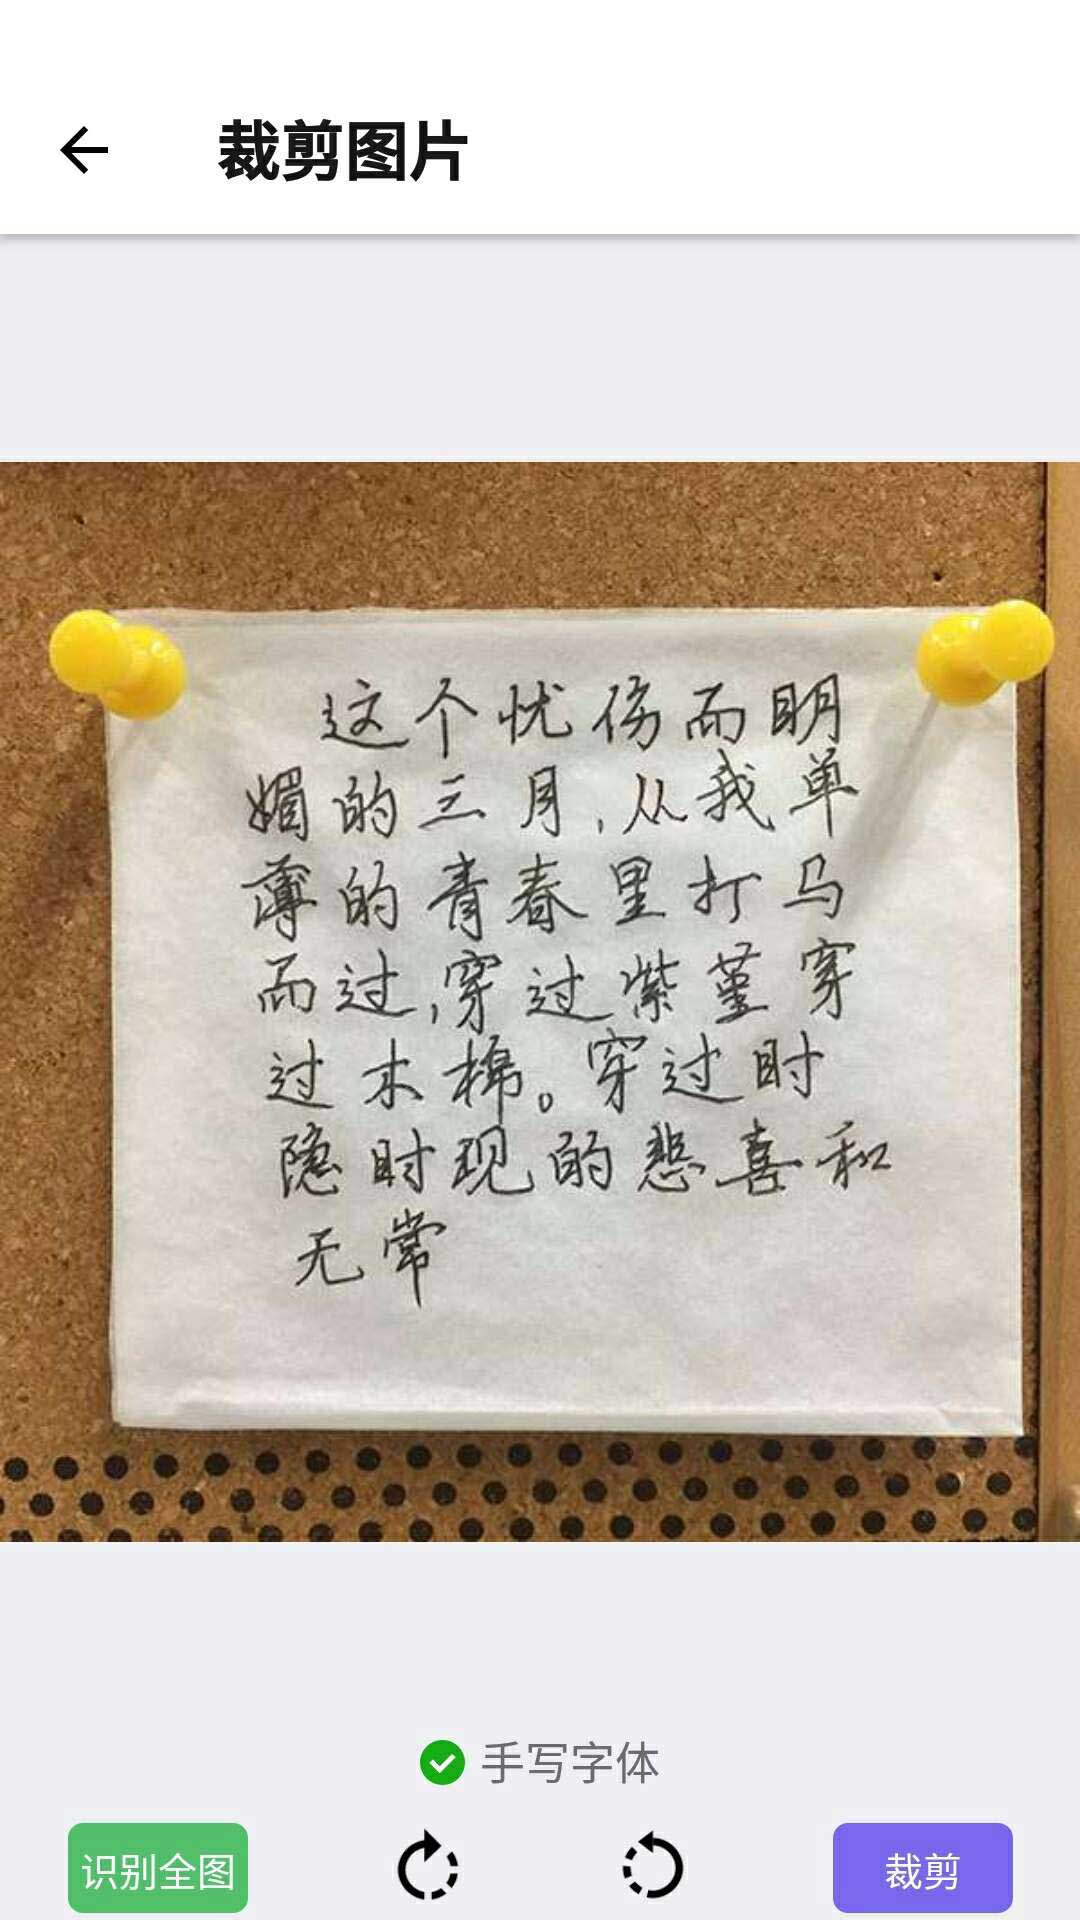 裁剪图片
这个忧伤而明
媚的三月,从我单
薄的青春里打马
而过,穿过紫堇穿
过木棉。穿过时
隐时现的悲喜和
无常
手写字体
识别全图
裁剪